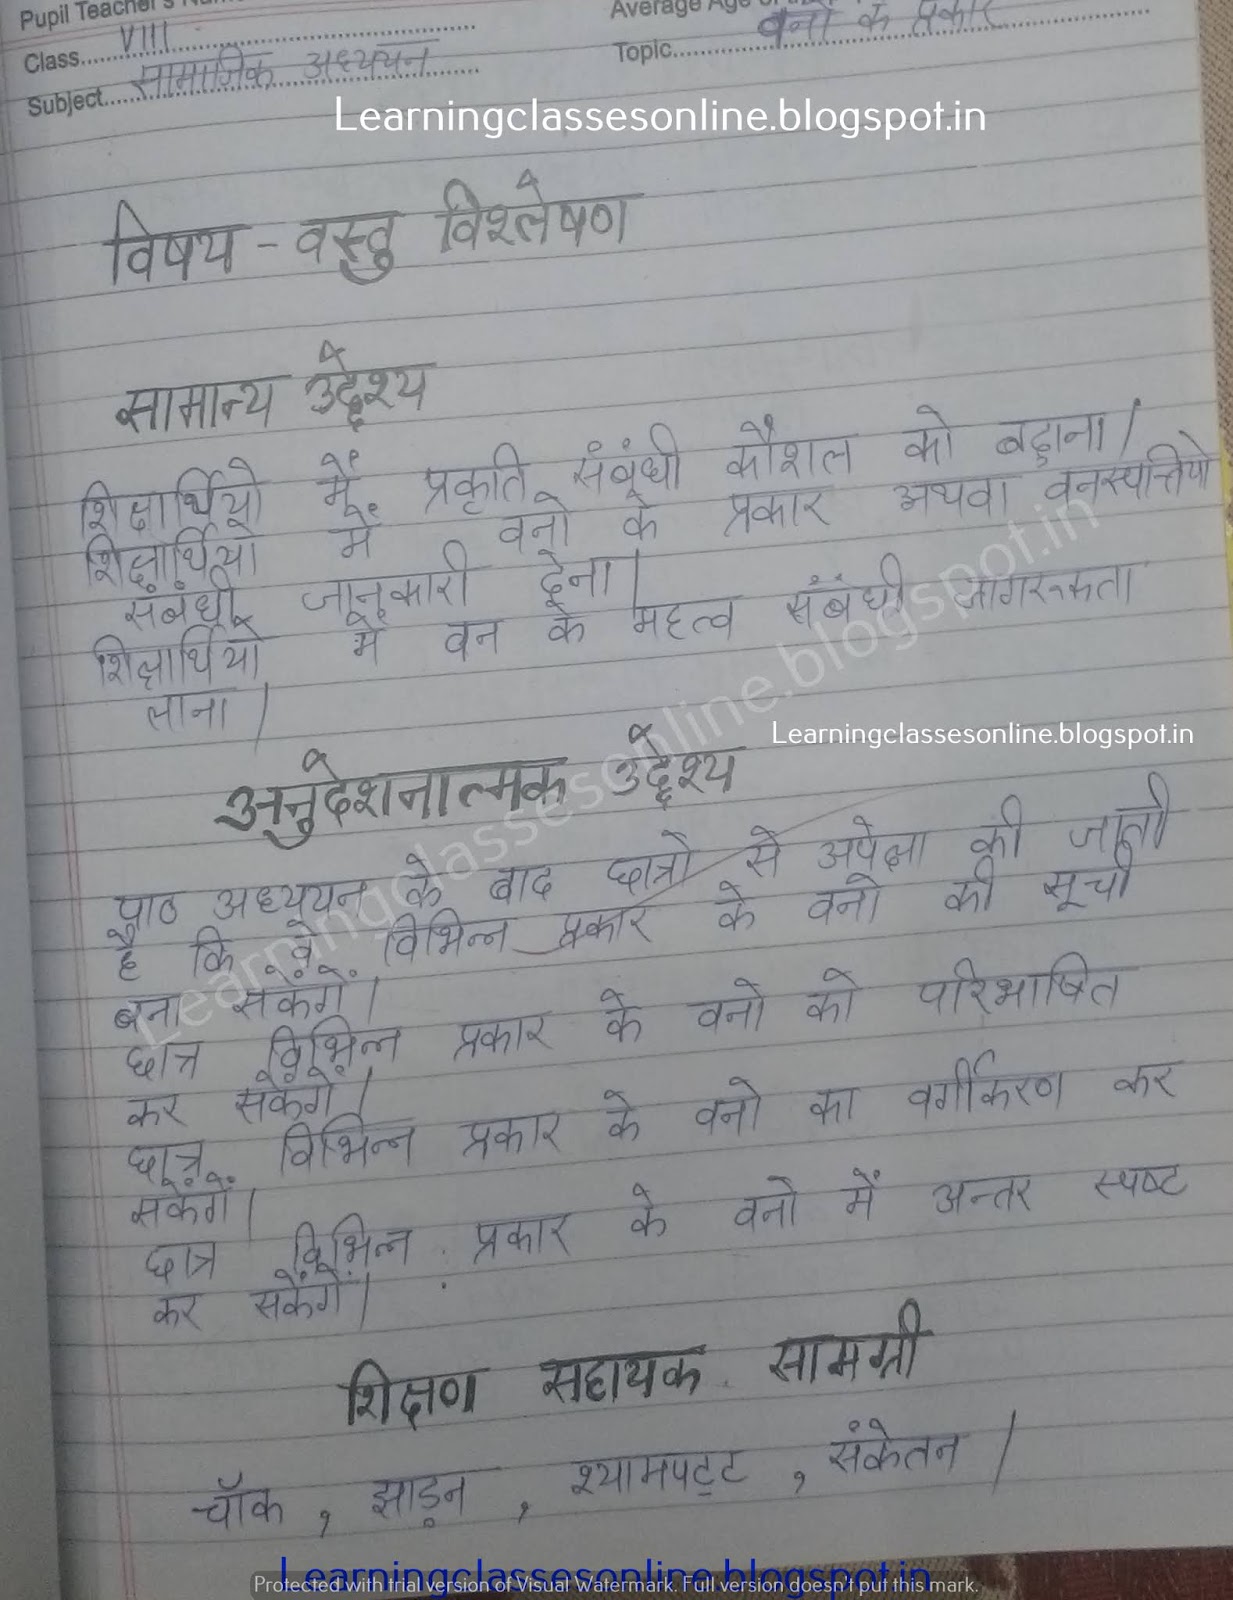 Pupil Teacher's
Average Age
Class......VIII
Topic......वनो के प्रकार
Subject......सामाजिक अध्ययन
Learningclassesonline.blogspot.in
विषय - वस्तु विश्लेषण
सामान्य उद्देश्य
शिक्षार्थियो में प्रकृति संबंधी कौशल को बढ़ाना।
शिक्षार्थियो मे वनो के प्रकार अथवा वनस्पत्तियो
संबंधी जानकारी देना।
शिक्षार्थियो मे वन के महत्व संबंधी जागरूकता
लाना।
Learningclassesonline.blogspot.in
अनुदेशनात्मक उद्देश्य
पाठ अध्ययन के बाद छात्रो से अपेक्षा की जाती
है कि वे विभिन्न प्रकार के वनो की सूची
बना सकेंगें।
छात्र विभिन्न प्रकार के वनो को परिभाषित
कर सकेंगे।
छात्र विभिन्न प्रकार के वनो का वर्गीकरण कर
सकेंगें।
छात्र विभिन्न प्रकार के वनो में अन्तर स्पष्ट
कर सकेंगें।
शिक्षण सहायक सामग्री
चॉक , झाड़न , श्यामपट्ट , संकेतन।
Learningclassesonline.blogspot.in
Learningclassesonline.blogspot.in
Protected with trial version of Visual Watermark. Full version doesn't put this mark.